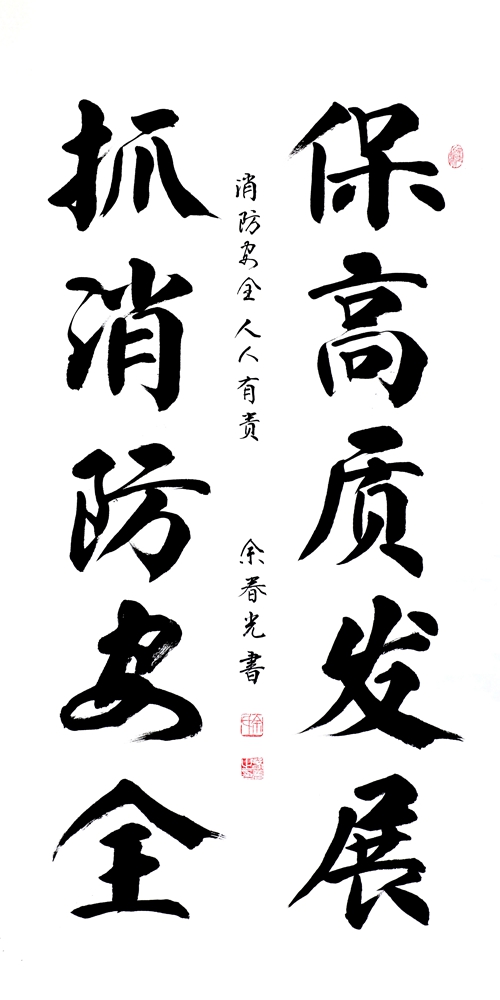 抓消防安全
保高质发展
消防安全人人有责
余春光書